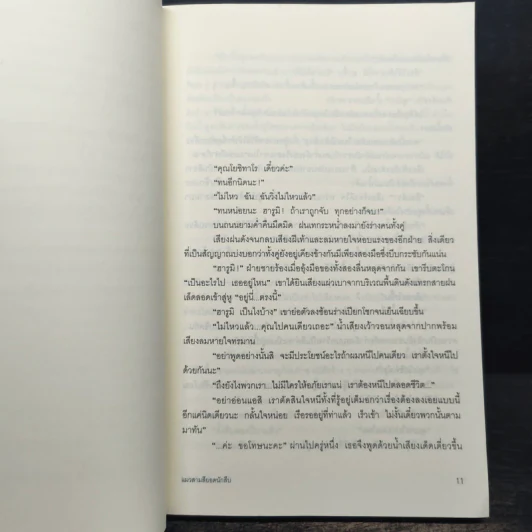 “คุณโยชิทาโร เดี๋ยวค่ะ”
“ทนอีกนิดนะ!”
“ไม่ไหว ฉัน ฉันวิ่งไม่ไหวแล้ว”
“ทนหน่อยนะ ฮารูมิ! ถ้าเราถูกจับ ทุกอย่างก็จบ!”
บนถนนยามค่ำคืนมืดมิด ฝนเทกระหน่ำลงมายังร่างคนทั้งคู่
เสียงฝนดังจนกลบเสียงฝีเท้าและลมหายใจหอบแรงของอีกฝ่าย สิ่งเดียว
ที่เป็นสัญญาณแบ่งบอกว่าทั้งคู่ยังอยู่เคียงข้างกันมีเพียงสองมือซึ่งบีบกระชับกันแน่น
“ฮารูมิ!” ฝ่ายชายร้องเมื่ออุ้งมือของทั้งสองลื่นหลุดจากกัน เขารีบตะโกน
“เป็นอะไรไป เธออยู่ไหน” เขาได้ยินเสียงแผ่วเบาจากบริเวณพื้นดินดังแทรกสายฝน
เล็ดลอดเข้าสู่หู “อยู่นี่...ตรงนี้”
“ฮารูมิ เป็นไงบ้าง” เขาย่อตัวลงช้อนร่างเปียกโชกจนเย็นเฉียบขึ้น
“ไม่ไหวแล้ว...คุณไปคนเดียวเถอะ” น้ำเสียงเว้าวอนหลุดจากปากพร้อม
เสียงลมหายใจทรมาน
“อย่าพูดอย่างนั้นสิ จะมีประโยชน์อะไรถ้าผมหนีไปคนเดียว เราตั้งใจหนีไป
ด้วยกันนะ”
“ถึงยังไงพวกเรา...ไม่มีใครให้อภัยเราแน่ เราต้องหนีไปตลอดชีวิต...”
“อย่าอ่อนแอสิ เราตัดสินใจหนีทั้งที่รู้อยู่เต็มอกว่าเรื่องต้องลงเอยแบบนี้
อีกแค่นิดเดียวนะ กลั้นใจหน่อย เรือรออยู่ที่ท่าแล้ว เร็วเข้า ไม่งั้นเดี๋ยวพวกนั้นตาม
มาทัน”
“...ค่ะ ขอโทษนะคะ” ผ่านไปครู่หนึ่ง เธอจึงพูดด้วยน้ำเสียงเด็ดเดี่ยวขึ้น
แมวสามสียอดนักสืบ 11